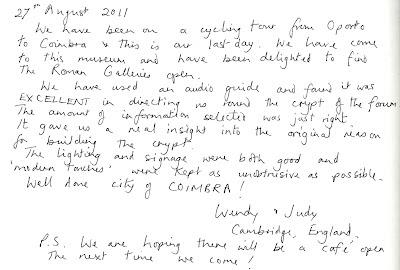 27th August 2011
We have been on a cycling tour from Oporto
to Coimbra & this is our last day. We have come
to this museum and have been delighted to find
The Roman Galleries open.
We have used an audio guide and found it was
EXCELLENT in directing us round the crypt of the forum
The amount of information selected was just right.
It gave us a real insight into the original reason
for building the crypt.
The lighting and signage were both good and
'modern touches' were kept as unobtrusive as possible.
Well done city of COIMBRA!
Wendy & Judy
Cambridge, England.
P.S. We are hoping there will be a café open
The next time we come!